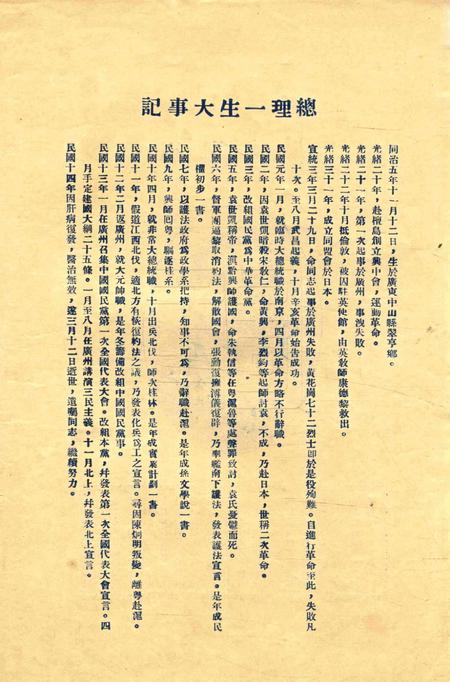 總理一生大事記
同治五年十一月十二日，生於廣東中山縣翠亨鄉。
光緒二十年，赴檀島創立興中會，運動革命。
光緒二十一年，第一次起事於廣州，事洩失敗。
光緒二十二年十月抵倫敦，被囚駐英使館，由英教師康德黎救出。
光緒三十一年，成立同盟會於日本。
宣統三年三月二十九日，命同志起事於廣州失敗，黃花崗七十二烈士卽於是役殉難。自進行革命至此，失敗凡
十次。至八月武昌起義，十月辛亥革命始告成功。
民國元年一月，就臨時大總統職於南京，四月以革命方略不行辭職。
民國二年，因袁世凱暗殺宋敎仁，命黃興，李烈鈞等起師討袁，不成，乃赴日本，世稱二次革命。
民國三年，改組國民黨爲中華革命黨。
民國五年，袁世凱稱帝，滇黔興師護國，命朱執信等在粵滬魯等處聲罪致討，袁氏憂鬱而死。
民國六年，督軍團逼黎取消約法，解散國會，張勳復擁溥儀復辟，乃率艦南下護法，發表護法宣言。是年成民
權初步一書。
民國七年，以護法政府爲政學系把持，知事不可爲，乃辭職赴滬。是年成孫文學說一書。
民國九年，興師回粵，驅逐桂系。
民國十年四月，就非常大總統職，十月出兵北伐，師次桂林。是年成實業計劃一書。
民國十一年，假道江西北伐，適北方有恢復約法之議，乃發表化兵爲工之宣言。尋因陳炯明叛變，離粵赴滬。
民國十二年二月返廣州，就大元帥職，是年冬籌備改組中國國民黨事。
民國十三年一月在廣州召集中國國民黨第一次全國代表大會。改組本黨，幷發表第一次全國代表大會宣言。四
月手定建國大綱二十五條。一月至八月在廣州講演三民主義。十一月北上，幷發表北上宣言。
民國十四年因肝病復發，醫治無效，遂三月十二日逝世，遺囑同志，繼續努力。